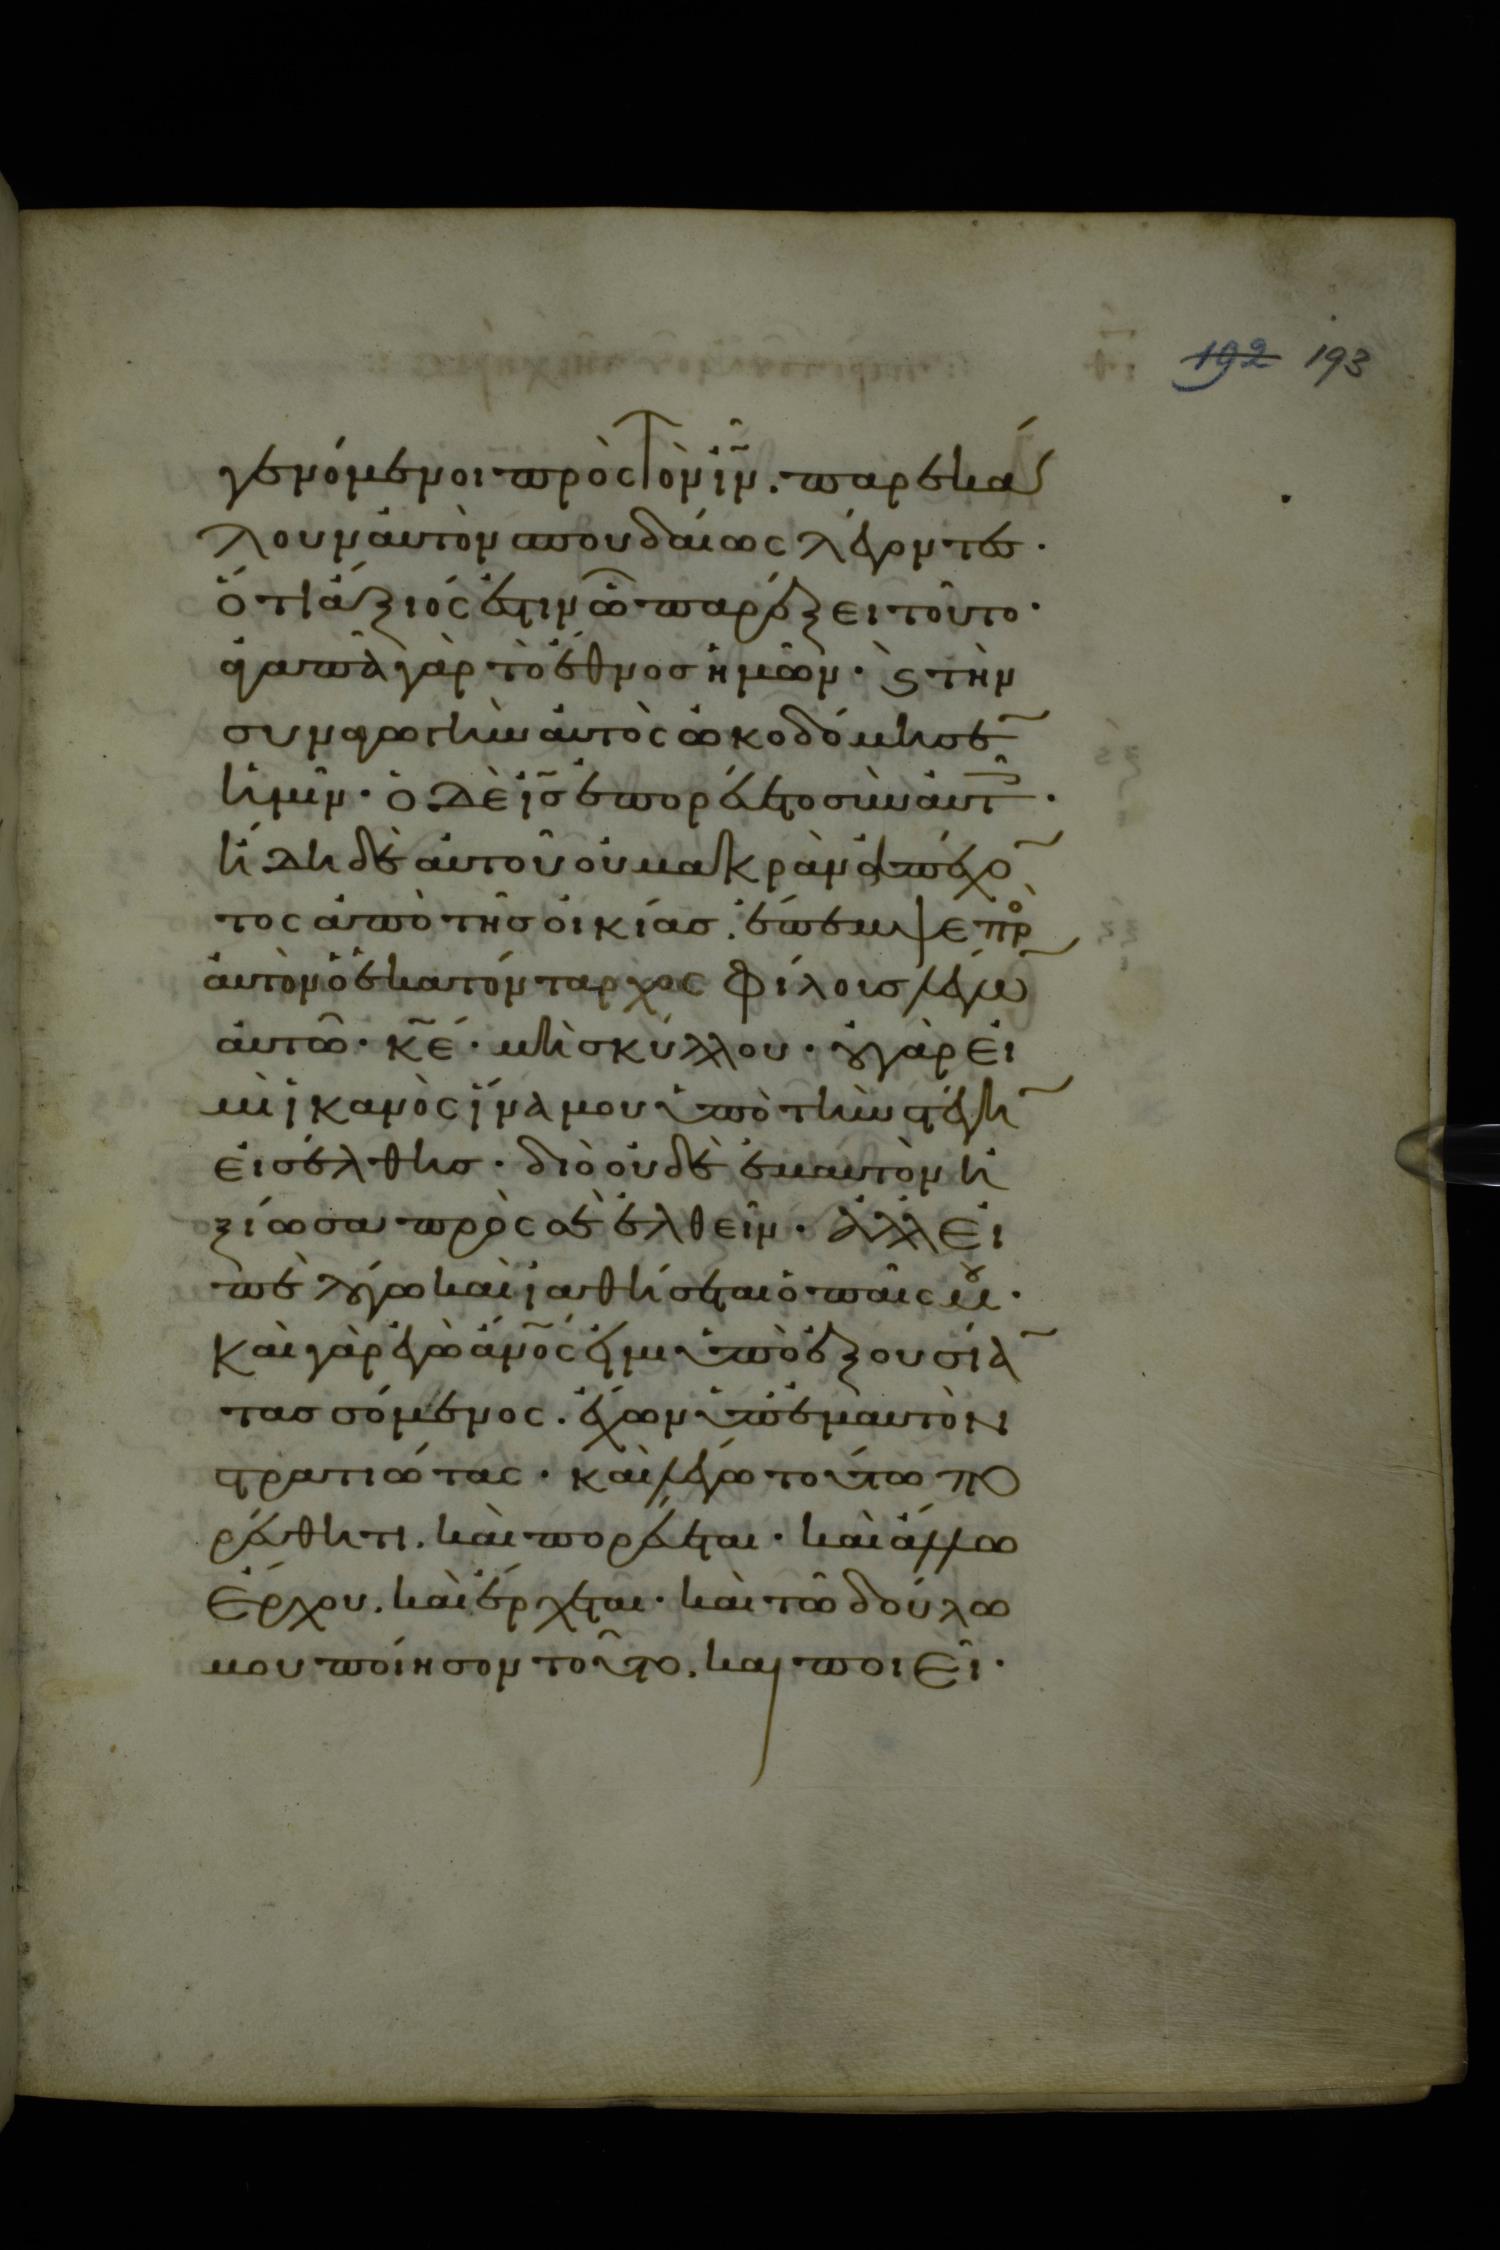 192 193
γενόμενοι πρὸς τὸν ἰ̅ν̅. παρεκά
λουν ἀυτὸν σπουδαίως λέγοντες·
ὅτι ἄξιός ἐστιν ὧ παρέξει τοῦτο·
ἀγαπᾶ γὰρ τὸ ἔθνος ἡμῶν· ϗ τὴν
συναγωγὴν ἀυτὸς ὠκοδόμησε̅
ἡμῖν· ὁ δὲ ι̅σ̅ ἐπορεύετο σὺν ἀυτ̅·
ἤδη δὲ ἀυτοῦ ὀυ μακρὰν ἀπέχο̅
τος ἀπὸ τῆς ὀικίας. ἔπεμψε πρ
ἀυτὸν ὁ ἑκατόνταρχος φίλους λέγω̅
ἀυτῶ· κ̅ε̅· μὴ σκύλλου· ὀυ γὰρ ἐι
μὶ ἱκανὸς ἵνα μου ὑπὸ τὴν στέγη̅
ἐισέλθης· διὸ ὀυδὲ ἐμαυτὸν ἠ
ξίωσα πρός σε ἐλθεῖν· ἀλλ' ἐι
πὲ λόγω καὶ ἰαθήσεται ὁ παῖς μου·
καὶ γὰρ ἐγὼ ἄν̅ο̅ς ἐιμι ὑπὸ ἐξουσία̅
τασσόμενος. ἔχων ὑπ' ἐμαυτὸν
στρατιώτας· καὶ λέγω τούτω πο
ρεύθητι. καὶ πορεύεται· καὶ ἄλλω
ἔρχου. καὶ ἔρχεται· καὶ τῶ δούλω
μου ποίησον τοῦτο. και ποιεῖ·